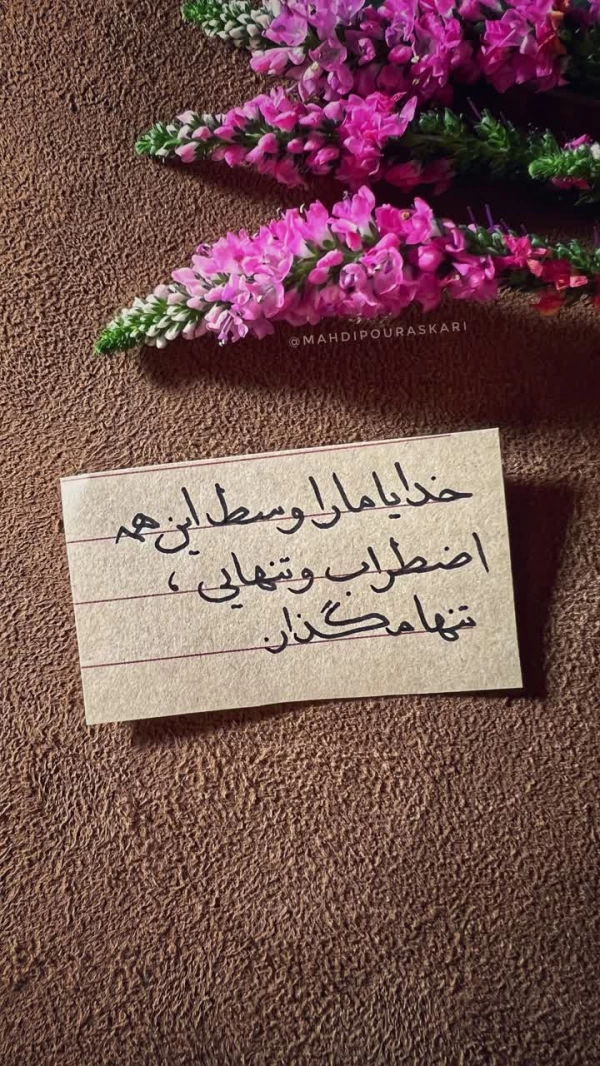 @MAHDIPOURASKARI
خدایا ما را وسط این همه
اضطراب و تنهایی ،
تنها مگذار